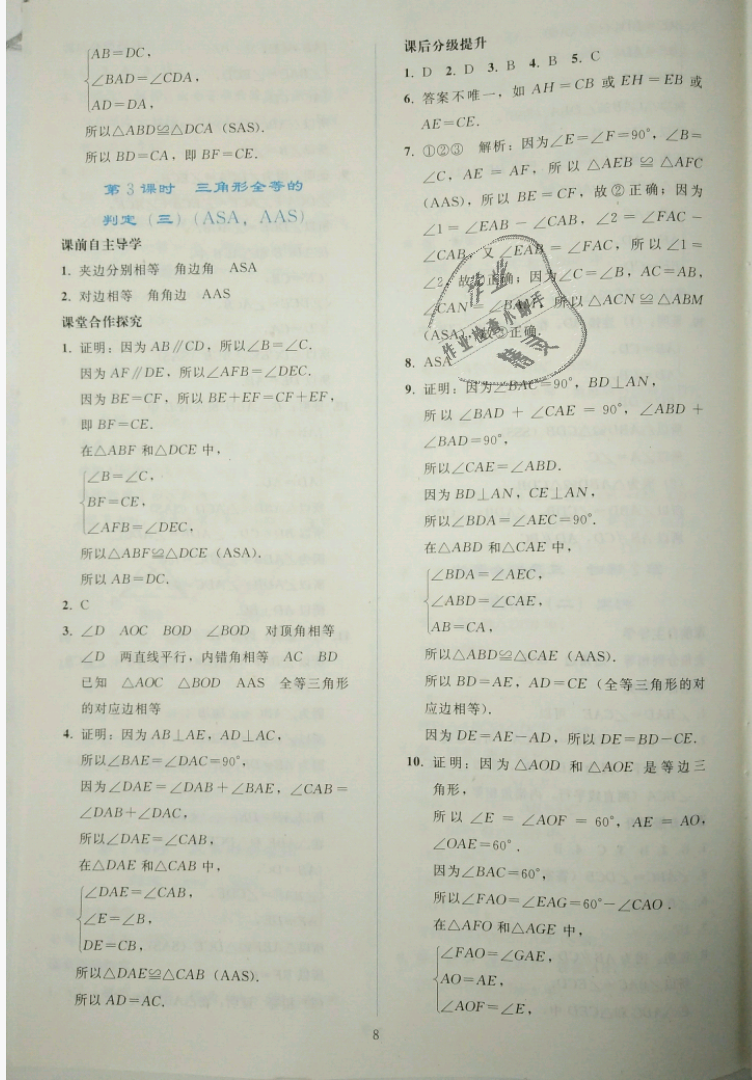 AB=DC,
∠BAD=∠CDA,
AD=DA,
所以△ABD≌△DCA (SAS).
所以 BD=CA，即 BF=CE.
第 3 课时　三角形全等的
判定（三）(ASA, AAS)
课前自主导学
1. 夹边分别相等　角边角　ASA
2. 对边相等　角角边　AAS
课堂合作探究
1. 证明：因为 AB∥CD，所以∠B=∠C.
因为 AF∥DE，所以∠AFB=∠DEC.
因为 BE=CF，所以 BE+EF=CF+EF，
即 BF=CE.
在△ABF 和△DCE 中，
∠B=∠C,
BF=CE,
∠AFB=∠DEC,
所以△ABF≌△DCE (ASA).
所以 AB=DC.
2. C
3. ∠D　AOC　BOD　∠BOD　对顶角相等
∠D　两直线平行，内错角相等　AC　BD
已知　△AOC　△BOD　AAS　全等三角形
的对应边相等
4. 证明：因为 AB⊥AE，AD⊥AC，
所以∠BAE=∠DAC=90°，
因为∠DAE=∠DAB+∠BAE，∠CAB=
∠DAB+∠DAC，
所以∠DAE=∠CAB，
在△DAE 和△CAB 中，
∠DAE=∠CAB,
∠E=∠B,
DE=CB,
所以△DAE≌△CAB (AAS).
所以 AD=AC.
课后分级提升
1. D 2. D 3. B 4. B 5. C
6. 答案不唯一，如 AH=CB 或 EH=EB 或
AE=CE.
7. ①②③　解析：因为∠E=∠F=90°，∠B=
∠C，AE=AF，所以△AEB≌△AFC
(AAS)，所以 BE=CF，故②正确；因为
∠1=∠EAB-∠CAB，∠2=∠FAC-
∠CAB，又∠EAB=∠FAC，所以∠1=
∠2，故①正确；因为∠C=∠B，AC=AB，
∠CAN=∠BAM，所以△ACN≌△ABM
(ASA)，故③正确.
8. ASA
9. 证明：因为∠BAC=90°，BD⊥AN，
所以∠BAD+∠CAE=90°，∠ABD+
∠BAD=90°，
所以∠CAE=∠ABD.
因为 BD⊥AN，CE⊥AN，
所以∠BDA=∠AEC=90°.
在△ABD 和△CAE 中，
∠BDA=∠AEC,
∠ABD=∠CAE,
AB=CA,
所以△ABD≌△CAE (AAS).
所以 BD=AE，AD=CE（全等三角形的对
应边相等）.
因为 DE=AE-AD，所以 DE=BD-CE.
10. 证明：因为△AOD 和△AOE 是等边三
角形，
所以∠E=∠AOF=60°，AE=AO，
∠OAE=60°.
因为∠BAC=60°，
所以∠FAO=∠EAG=60°-∠CAO.
在△AFO 和△AGE 中，
∠FAO=∠GAE,
AO=AE,
∠AOF=∠E,
作业
作业检查小助手
8